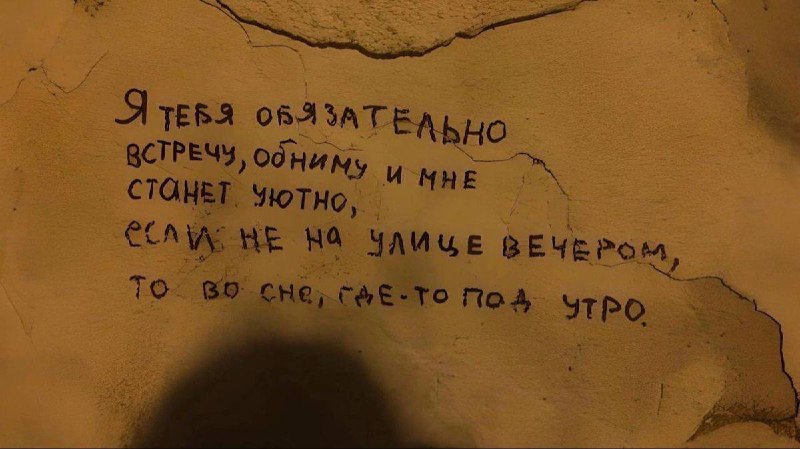 Я ТЕБЯ ОБЯЗАТЕЛЬНО
ВСТРЕЧУ, ОБНИМУ И МНЕ
СТАНЕТ УЮТНО,
ЕСЛИ НЕ НА УЛИЦЕ ВЕЧЕРОМ,
ТО ВО СНЕ, ГДЕ-ТО ПОД УТРО.